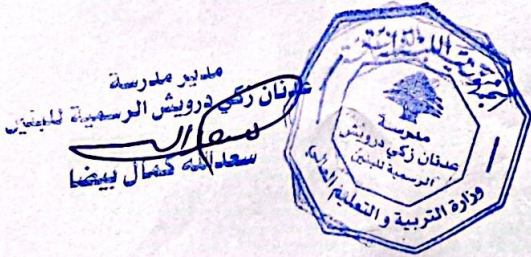 مدير مدرسة
عدنان زكي درويش الرسمية للبنين
سعدالله كمال بيضا
الجمهورية اللبنانية
مدرسة
عدنان زكي درويش
الرسمية للبنين
وزارة التربية والتعليم العالي